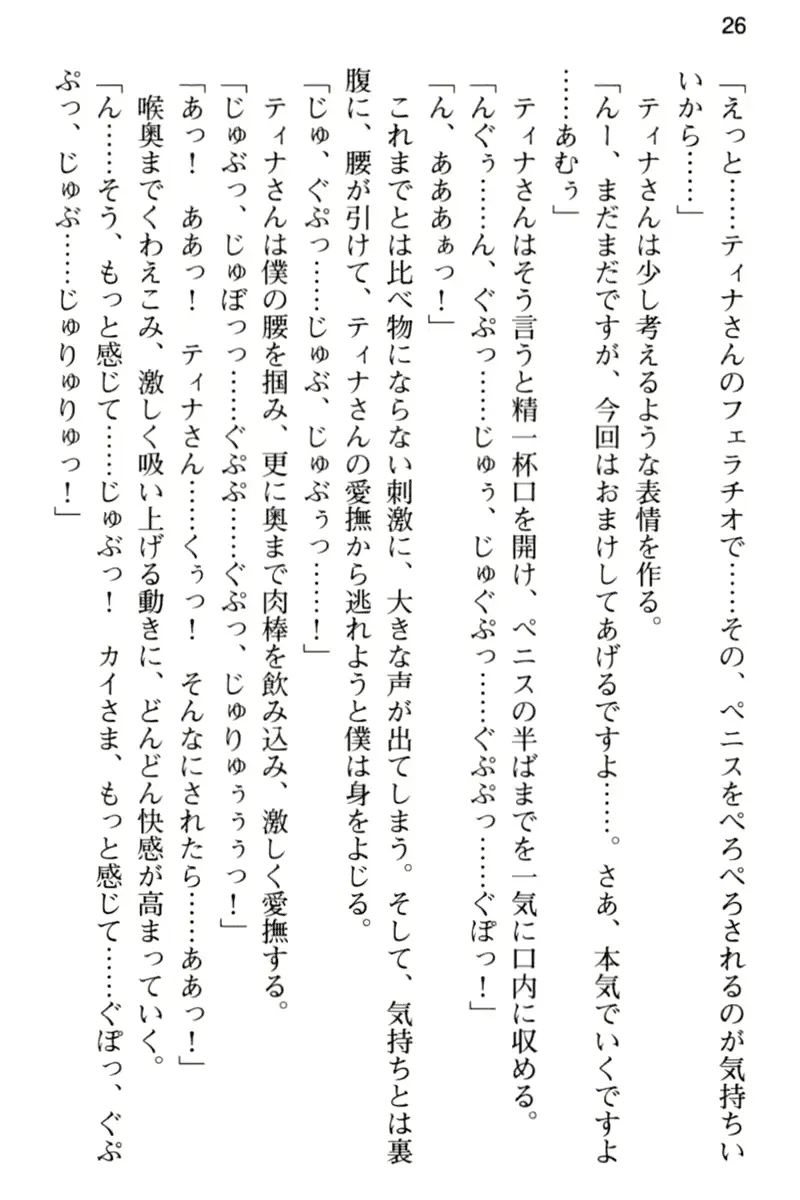 26
「えっと……ティナさんのフェラチオで……その、ペニスをぺろぺろされるのが気持ちい
いから……」
ティナさんは少し考えるような表情を作る。
「んー、まだまだですが、今回はおまけしてあげるですよ……。さあ、本気でいくですよ
……あむぅ」
ティナさんはそう言うと精一杯口を開け、ペニスの半ばまでを一気に口内に収める。
「んぐぅ……ん、ぐぷっ……じゅぅ、じゅぐぷっ……ぐぷぷっ……ぐぽっ！」
「ん、あああぁっ！」
これまでとは比べ物にならない刺激に、大きな声が出てしまう。そして、気持ちとは裏
腹に、腰が引けて、ティナさんの愛撫から逃れようと僕は身をよじる。
「じゅ、ぐぷっ……じゅぶ、じゅぶぅっ……！」
ティナさんは僕の腰を掴み、更に奥まで肉棒を飲み込み、激しく愛撫する。
「じゅぶっ、じゅぼっっ……ぐぷぷ……ぐぷっ、じゅりゅぅぅぅっ！」
「あっ！　ああっ！　ティナさん……くぅっ！　そんなにされたら……ああっ！」
喉奥までくわえこみ、激しく吸い上げる動きに、どんどん快感が高まっていく。
「ん……そう、もっと感じて……じゅぶっ！　カイさま、もっと感じて……ぐぽっ、ぐぷ
ぷっ、じゅぶ……じゅりゅりゅっ！」